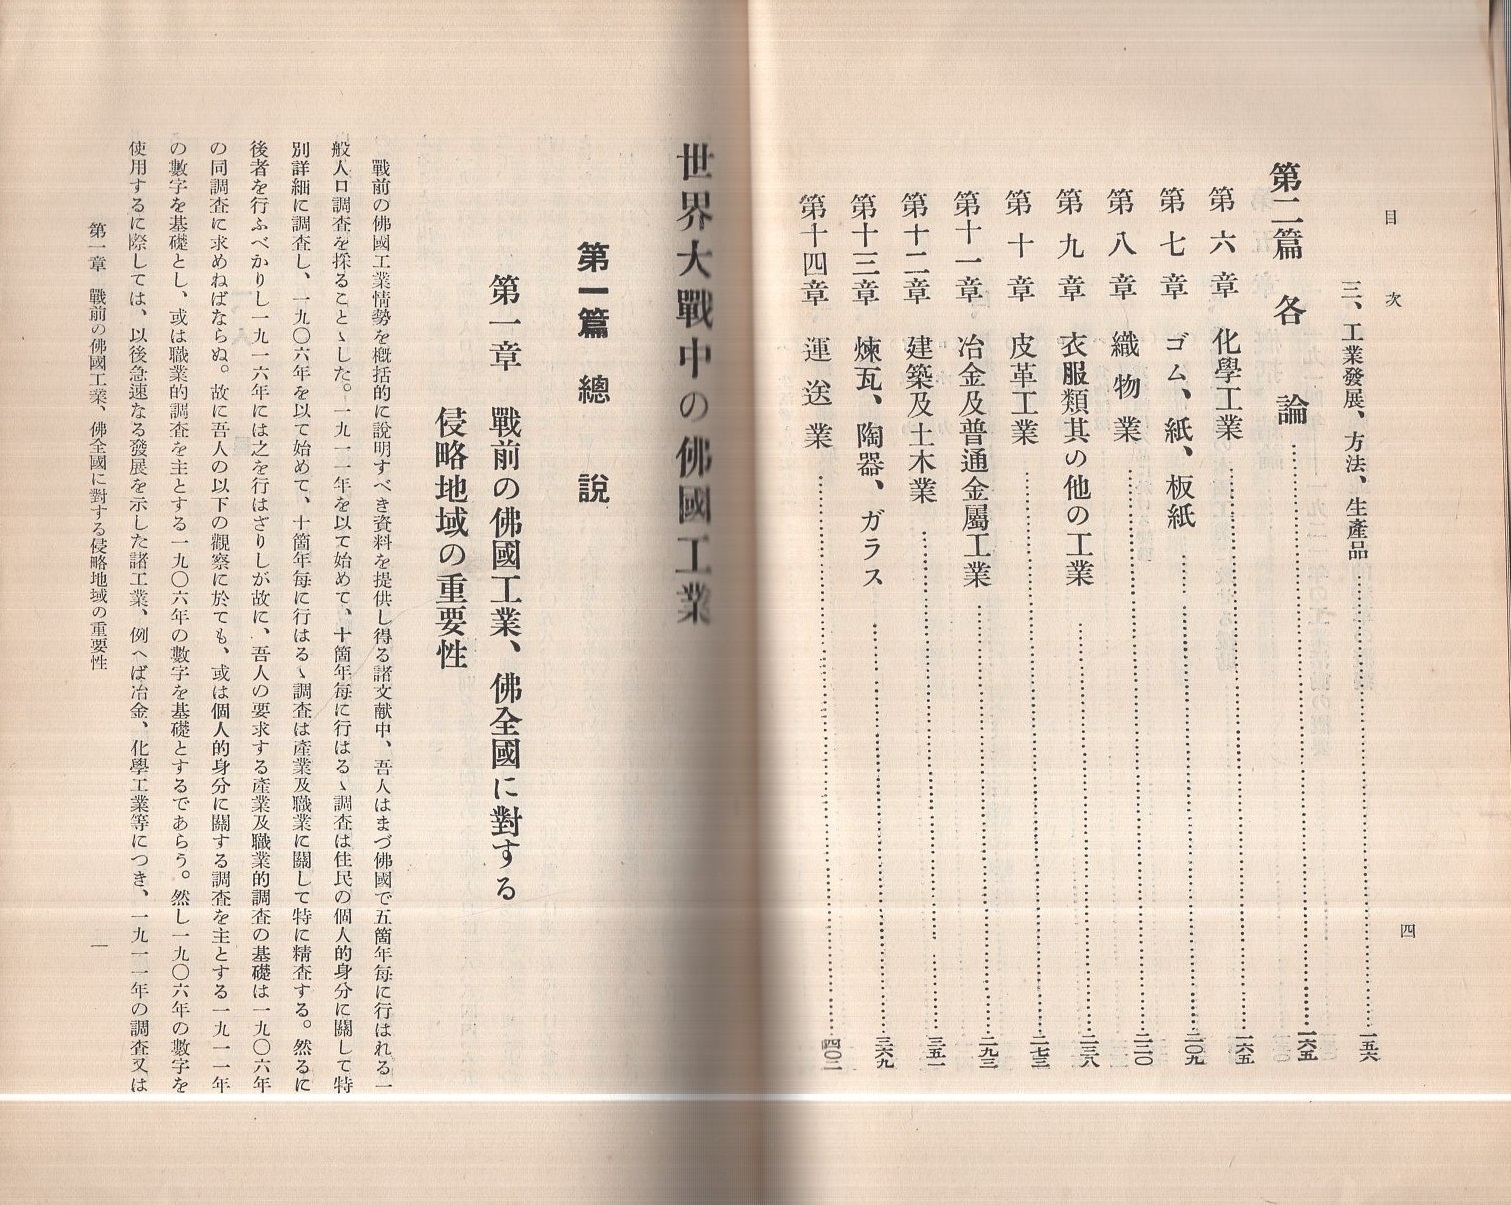 目次
四
三、工業發展、方法、生產品……一五六
第二篇 各論……一六五
第六章 化學工業……一六五
第七章 ゴム、紙、板紙……二〇九
第八章 織物業……二二〇
第九章 衣服類其の他の工業……二三八
第十章 皮革工業……二七三
第十一章 冶金及普通金屬工業……二九三
第十二章 建築及土木業……三五一
第十三章 煉瓦、陶器、ガラス……三六九
第十四章 運送業……四〇二
世界大戰中の佛國工業
第一篇 總說
第一章 戰前の佛國工業、佛全國に對する
侵略地域の重要性
戰前の佛國工業情勢を槪括的に說明すべき資料を提供し得る諸文献中、吾人はまづ佛國で五箇年每に行はれる一
般人口調査を採ることゝした。一九一一年を以て始めて、十箇年每に行はるゝ調査は住民の個人的身分に關して特
別詳細に調査し、一九〇六年を以て始めて、十箇年每に行はるゝ調査は產業及職業に關して特に精査する。然るに
後者を行ふべかりし一九一六年には之を行はざりしが故に、吾人の要求する產業及職業的調査の基礎は一九〇六年
の同調査に求めねばならぬ。故に吾人の以下の觀察に於ても、或は個人的身分に關する調査を主とする一九一一年
の數字を基礎とし、或は職業的調査を主とする一九〇六年の數字を基礎とするであらう。然し一九〇六年の數字を
使用するに際しては、以後急速なる發展を示した諸工業、例へば冶金、化學工業等につき、一九一一年の調査又は
第一章 戰前の佛國工業、佛全國に對する侵略地域の重要性
一